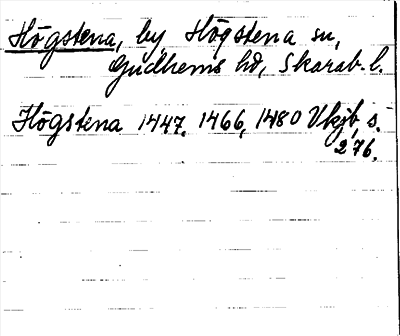 Högstena, by, Högstena sn,
Gudhems hd, Skarab. l.
Högstena 1447, 1466, 1480 Vkjb, s.
276.